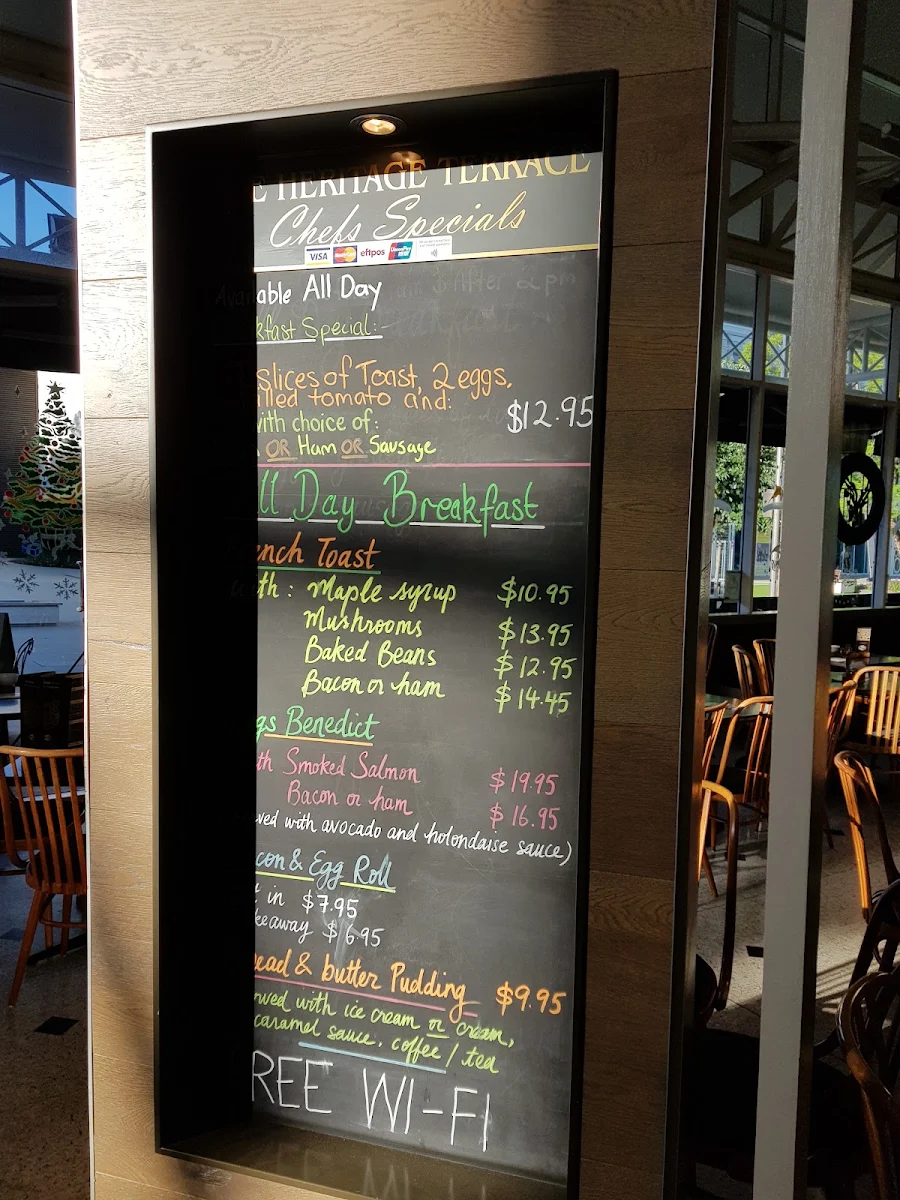 E HERITAGE TERRACE
Chefs Specials
VISA MasterCard eftpos
Available All Day
kfast Special:-
slices of Toast, 2 eggs,
illed tomato and:
with choice of: $12.95
OR Ham OR Sausage
ll Day Breakfast
ench Toast
with: Maple syrup $10.95
Mushrooms $13.95
Baked Beans $12.95
Bacon or ham $14.45
gs Benedict
th Smoked Salmon $19.95
Bacon or ham $16.95
ved with avocado and holondaise sauce)
con & Egg Roll
t in $7.95
keaway $6.95
ead & butter Pudding $9.95
rved with ice cream or cream,
caramel sauce, coffee / tea
REE WI-FI